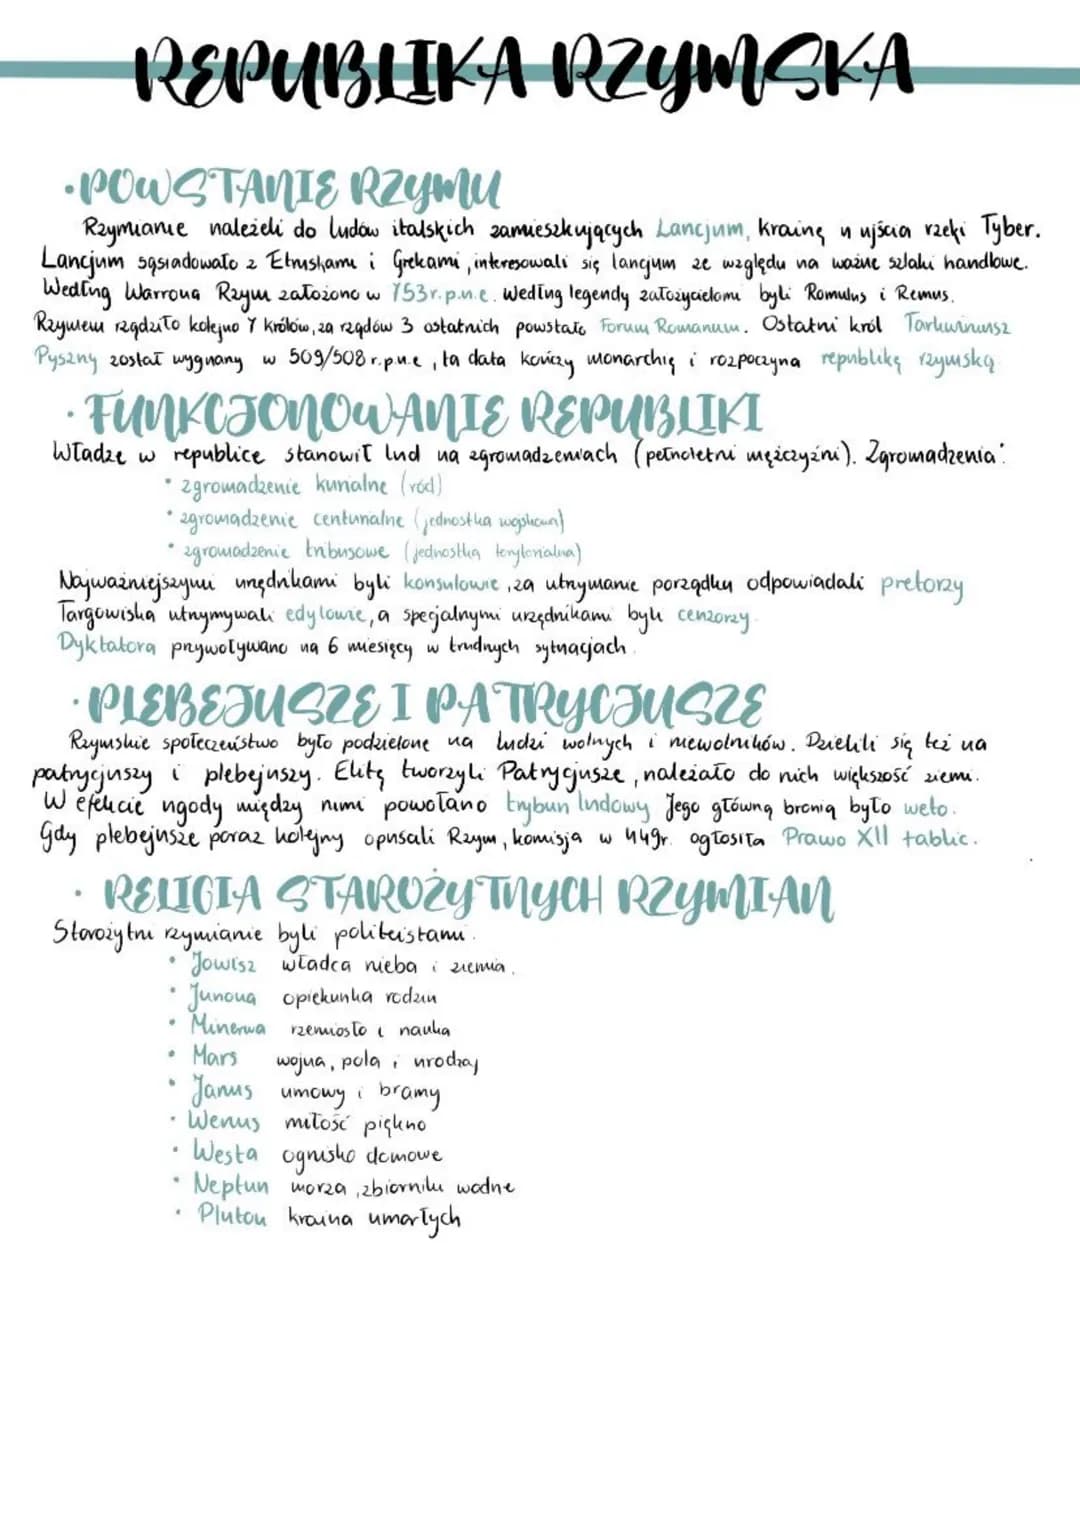 REPUBLIKA RZYMSKA
·POWSTANIE RZYMU
Rzymianie należeli do ludów italskich zamieszkujących Lancjum, krainę u ujścia rzeki Tyber.
Lancjum sąsiadowało z Etruskami i Grekami, interesowali się lancjum ze względu na ważne szlaki handlowe.
Według Warrona Rzym założono w 753r.p.n.e. Według legendy założycielami byli Romulus i Remus.
Rzymem rządziło kolejno 7 królów, za rządów 3 ostatnich powstało Forum Romanum. Ostatni król Tarkwiniusz
Pyszny został wygnany w 509/508 r.p.n.e, ta data kończy monarchię i rozpoczyna republikę rzymską
·FUNKCJONOWANIE REPUBLIKI
Władzę w republice stanowił lud na zgromadzeniach (pełnoletni mężczyźni). Zgromadzenia:
• zgromadzenie kurialne (ród)
• zgromadzenie centurialne (jednostka wojskowa)
• zgromadzenie tribusowe (jednostka terytorialna)
Najważniejszymi urzędnikami byli konsulowie, za utrzymanie porządku odpowiadali pretorzy
Targowiska utrzymywali edylowie, a specjalnymi urzędnikami byli cenzorzy.
Dyktatora przywoływano na 6 miesięcy w trudnych sytuacjach.
·PLEBEJUSZE I PATRYCJUSZE
Rzymskie społeczeństwo było podzielone na ludzi wolnych i niewolników. Dzielili się też na
patrycjuszy i plebejuszy. Elitę tworzyli Patrycjusze, należało do nich większość ziemi.
W efekcie ugody między nimi powołano trybun ludowy Jego główną bronią było weto.
Gdy plebejusze poraz kolejny opuścili Rzym, komisja w 449r. ogłosiła Prawo XII tablic.
· RELIGIA STAROŻYTNYCH RZYMIAN
Starożytni rzymianie byli politeistami.
• Jowisz władca nieba i ziemia.
• Junona opiekunka rodzin
• Minerwa rzemiosło i nauka
• Mars wojna, pola i urodzaj
• Janus umowy i bramy
• Wenus miłość piękno
• Westa ognisko domowe
• Neptun morza, zbiorniki wodne
• Pluton kraina umarłych